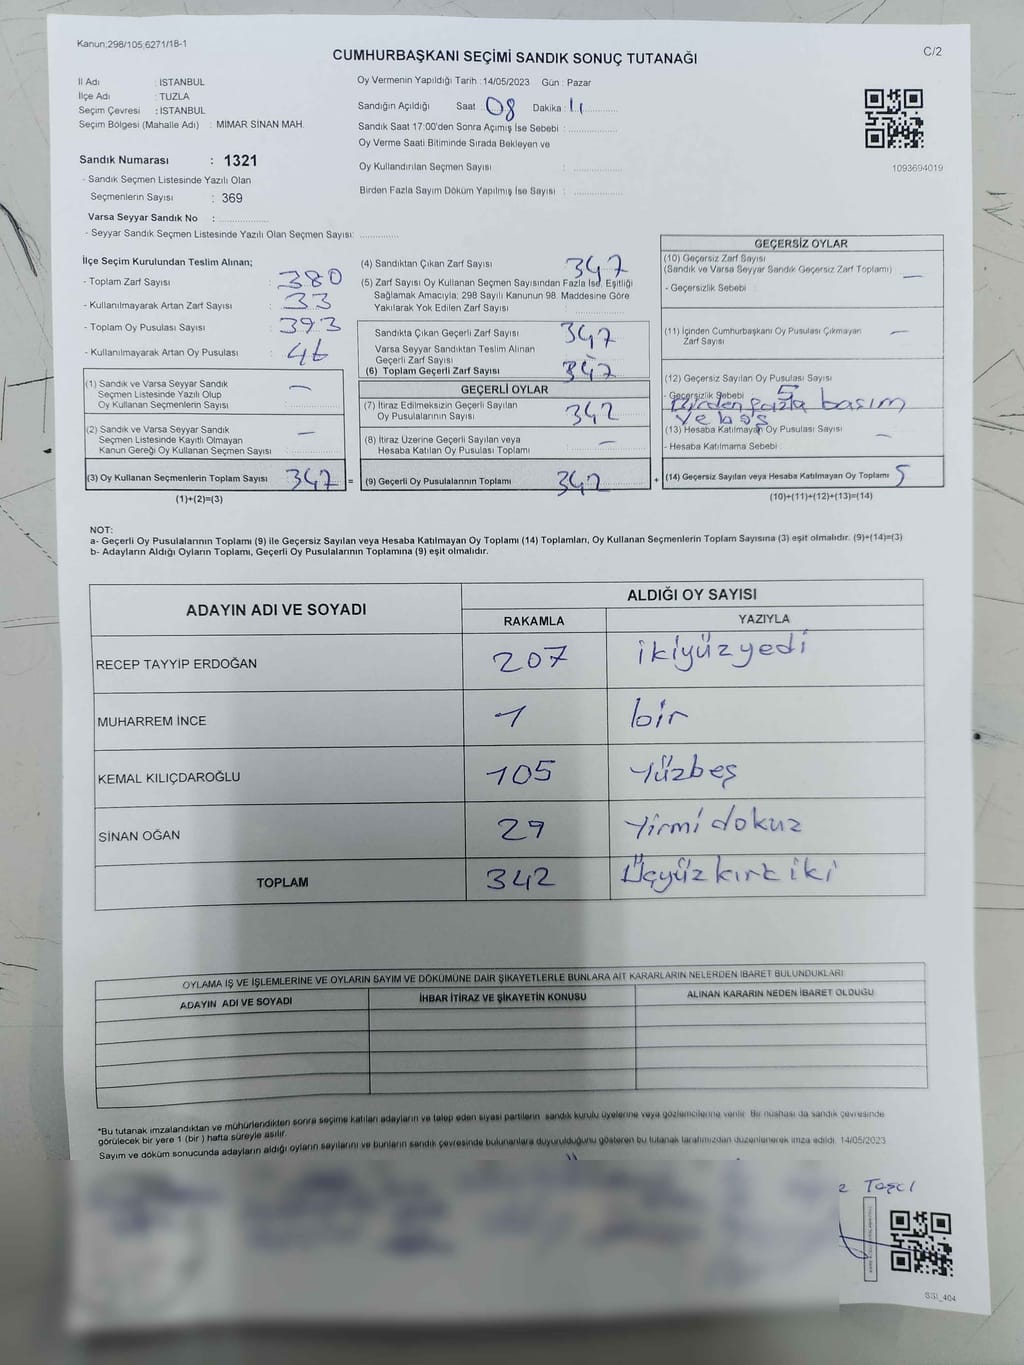 Kanun;298/105;6271/18-1
C/2
CUMHURBAŞKANI SEÇİMİ SANDIK SONUÇ TUTANAĞI
İl Adı : İSTANBUL
İlçe Adı : TUZLA
Seçim Çevresi : İSTANBUL
Seçim Bölgesi (Mahalle Adı) : MİMAR SİNAN MAH.
Oy Vermenin Yapıldığı Tarih : 14/05/2023 Gün : Pazar
Sandığın Açıldığı Saat : 08 Dakika : 11
Sandık Saat 17:00'den Sonra Açımış İse Sebebi :
Oy Verme Saati Bitiminde Sırada Bekleyen ve
Oy Kullandırılan Seçmen Sayısı :
Birden Fazla Sayım Döküm Yapılmış İse Sayısı :
1093694019
Sandık Numarası : 1321
- Sandık Seçmen Listesinde Yazılı Olan
Seçmenlerin Sayısı : 369
Varsa Seyyar Sandık No :
- Seyyar Sandık Seçmen Listesinde Yazılı Olan Seçmen Sayısı:
İlçe Seçim Kurulundan Teslim Alınan;
- Toplam Zarf Sayısı : 380
- Kullanılmayarak Artan Zarf Sayısı : 33
- Toplam Oy Pusulası Sayısı : 393
- Kullanılmayarak Artan Oy Pusulası : 46
(1) Sandık ve Varsa Seyyar Sandık
Seçmen Listesinde Yazılı Olup
Oy Kullanan Seçmenlerin Sayısı : —
(2) Sandık ve Varsa Seyyar Sandık
Seçmen Listesinde Kayıtlı Olmayan
Kanun Gereği Oy Kullanan Seçmen Sayısı : —
(3) Oy Kullanan Seçmenlerin Toplam Sayısı 347 =
(1)+(2)=(3)
(4) Sandıktan Çıkan Zarf Sayısı 347
(5) Zarf Sayısı Oy Kullanan Seçmen Sayısından Fazla İse, Eşitliği
Sağlamak Amacıyla; 298 Sayılı Kanunun 98. Maddesine Göre
Yakılarak Yok Edilen Zarf Sayısı :
Sandıkta Çıkan Geçerli Zarf Sayısı 347
Varsa Seyyar Sandıktan Teslim Alınan
Geçerli Zarf Sayısı -
(6) Toplam Geçerli Zarf Sayısı 347
GEÇERLİ OYLAR
(7) İtiraz Edilmeksizin Geçerli Sayılan
Oy Pusulalarının Sayısı : 342
(8) İtiraz Üzerine Geçerli Sayılan veya
Hesaba Katılan Oy Pusulası Toplamı : —
(9) Geçerli Oy Pusulalarının Toplamı 342 +
GEÇERSİZ OYLAR
(10) Geçersiz Zarf Sayısı
(Sandık ve Varsa Seyyar Sandık Geçersiz Zarf Toplamı) —
- Geçersizlik Sebebi :
(11) İçinden Cumhurbaşkanı Oy Pusulası Çıkmayan
Zarf Sayısı —
(12) Geçersiz Sayılan Oy Pusulası Sayısı 5
- Geçersizlik Sebebi : Birden fazla basım
ve boş
(13) Hesaba Katılmayan Oy Pusulası Sayısı —
- Hesaba Katılmama Sebebi :
(14) Geçersiz Sayılan veya Hesaba Katılmayan Oy Toplamı 5
(10)+(11)+(12)+(13)=(14)
NOT:
a- Geçerli Oy Pusulalarının Toplamı (9) ile Geçersiz Sayılan veya Hesaba Katılmayan Oy Toplamı (14) Toplamları, Oy Kullanan Seçmenlerin Toplam Sayısına (3) eşit olmalıdır. (9)+(14)=(3)
b- Adayların Aldığı Oyların Toplamı, Geçerli Oy Pusulalarının Toplamına (9) eşit olmalıdır.
ADAYIN ADI VE SOYADI
ALDIĞI OY SAYISI
RAKAMLA YAZIYLA
RECEP TAYYİP ERDOĞAN 207 ikiyüzyedi
MUHARREM İNCE 1 bir
KEMAL KILIÇDAROĞLU 105 Yüzbeş
SİNAN OĞAN 29 Yirmidokuz
TOPLAM 342 Üçyüzkırkiki
OYLAMA İŞ VE İŞLEMLERİNE VE OYLARIN SAYIM VE DÖKÜMÜNE DAİR ŞİKAYETLERLE BUNLARA AİT KARARLARIN NELERDEN İBARET BULUNDUKLARI
ADAYIN ADI VE SOYADI İHBAR İTİRAZ VE ŞİKAYETİN KONUSU ALINAN KARARIN NEDEN İBARET OLDUĞU
*Bu tutanak imzalandıktan ve mühürlendikten sonra seçime katılan adayların ve talep eden siyasi partilerin sandık kurulu üyelerine veya gözlemcilerine verilir. Bir nüshası da sandık çevresinde
görülecek bir yere 1 (bir ) hafta süreyle asılır.
Sayım ve döküm sonucunda adayların aldığı oyların sayılarını ve bunların sandık çevresinde bulunanlara duyurulduğunu gösteren bu tutanak tarafımızdan düzenlenerek imza edildi. 14/05/2023
Taşcı
SSI_404